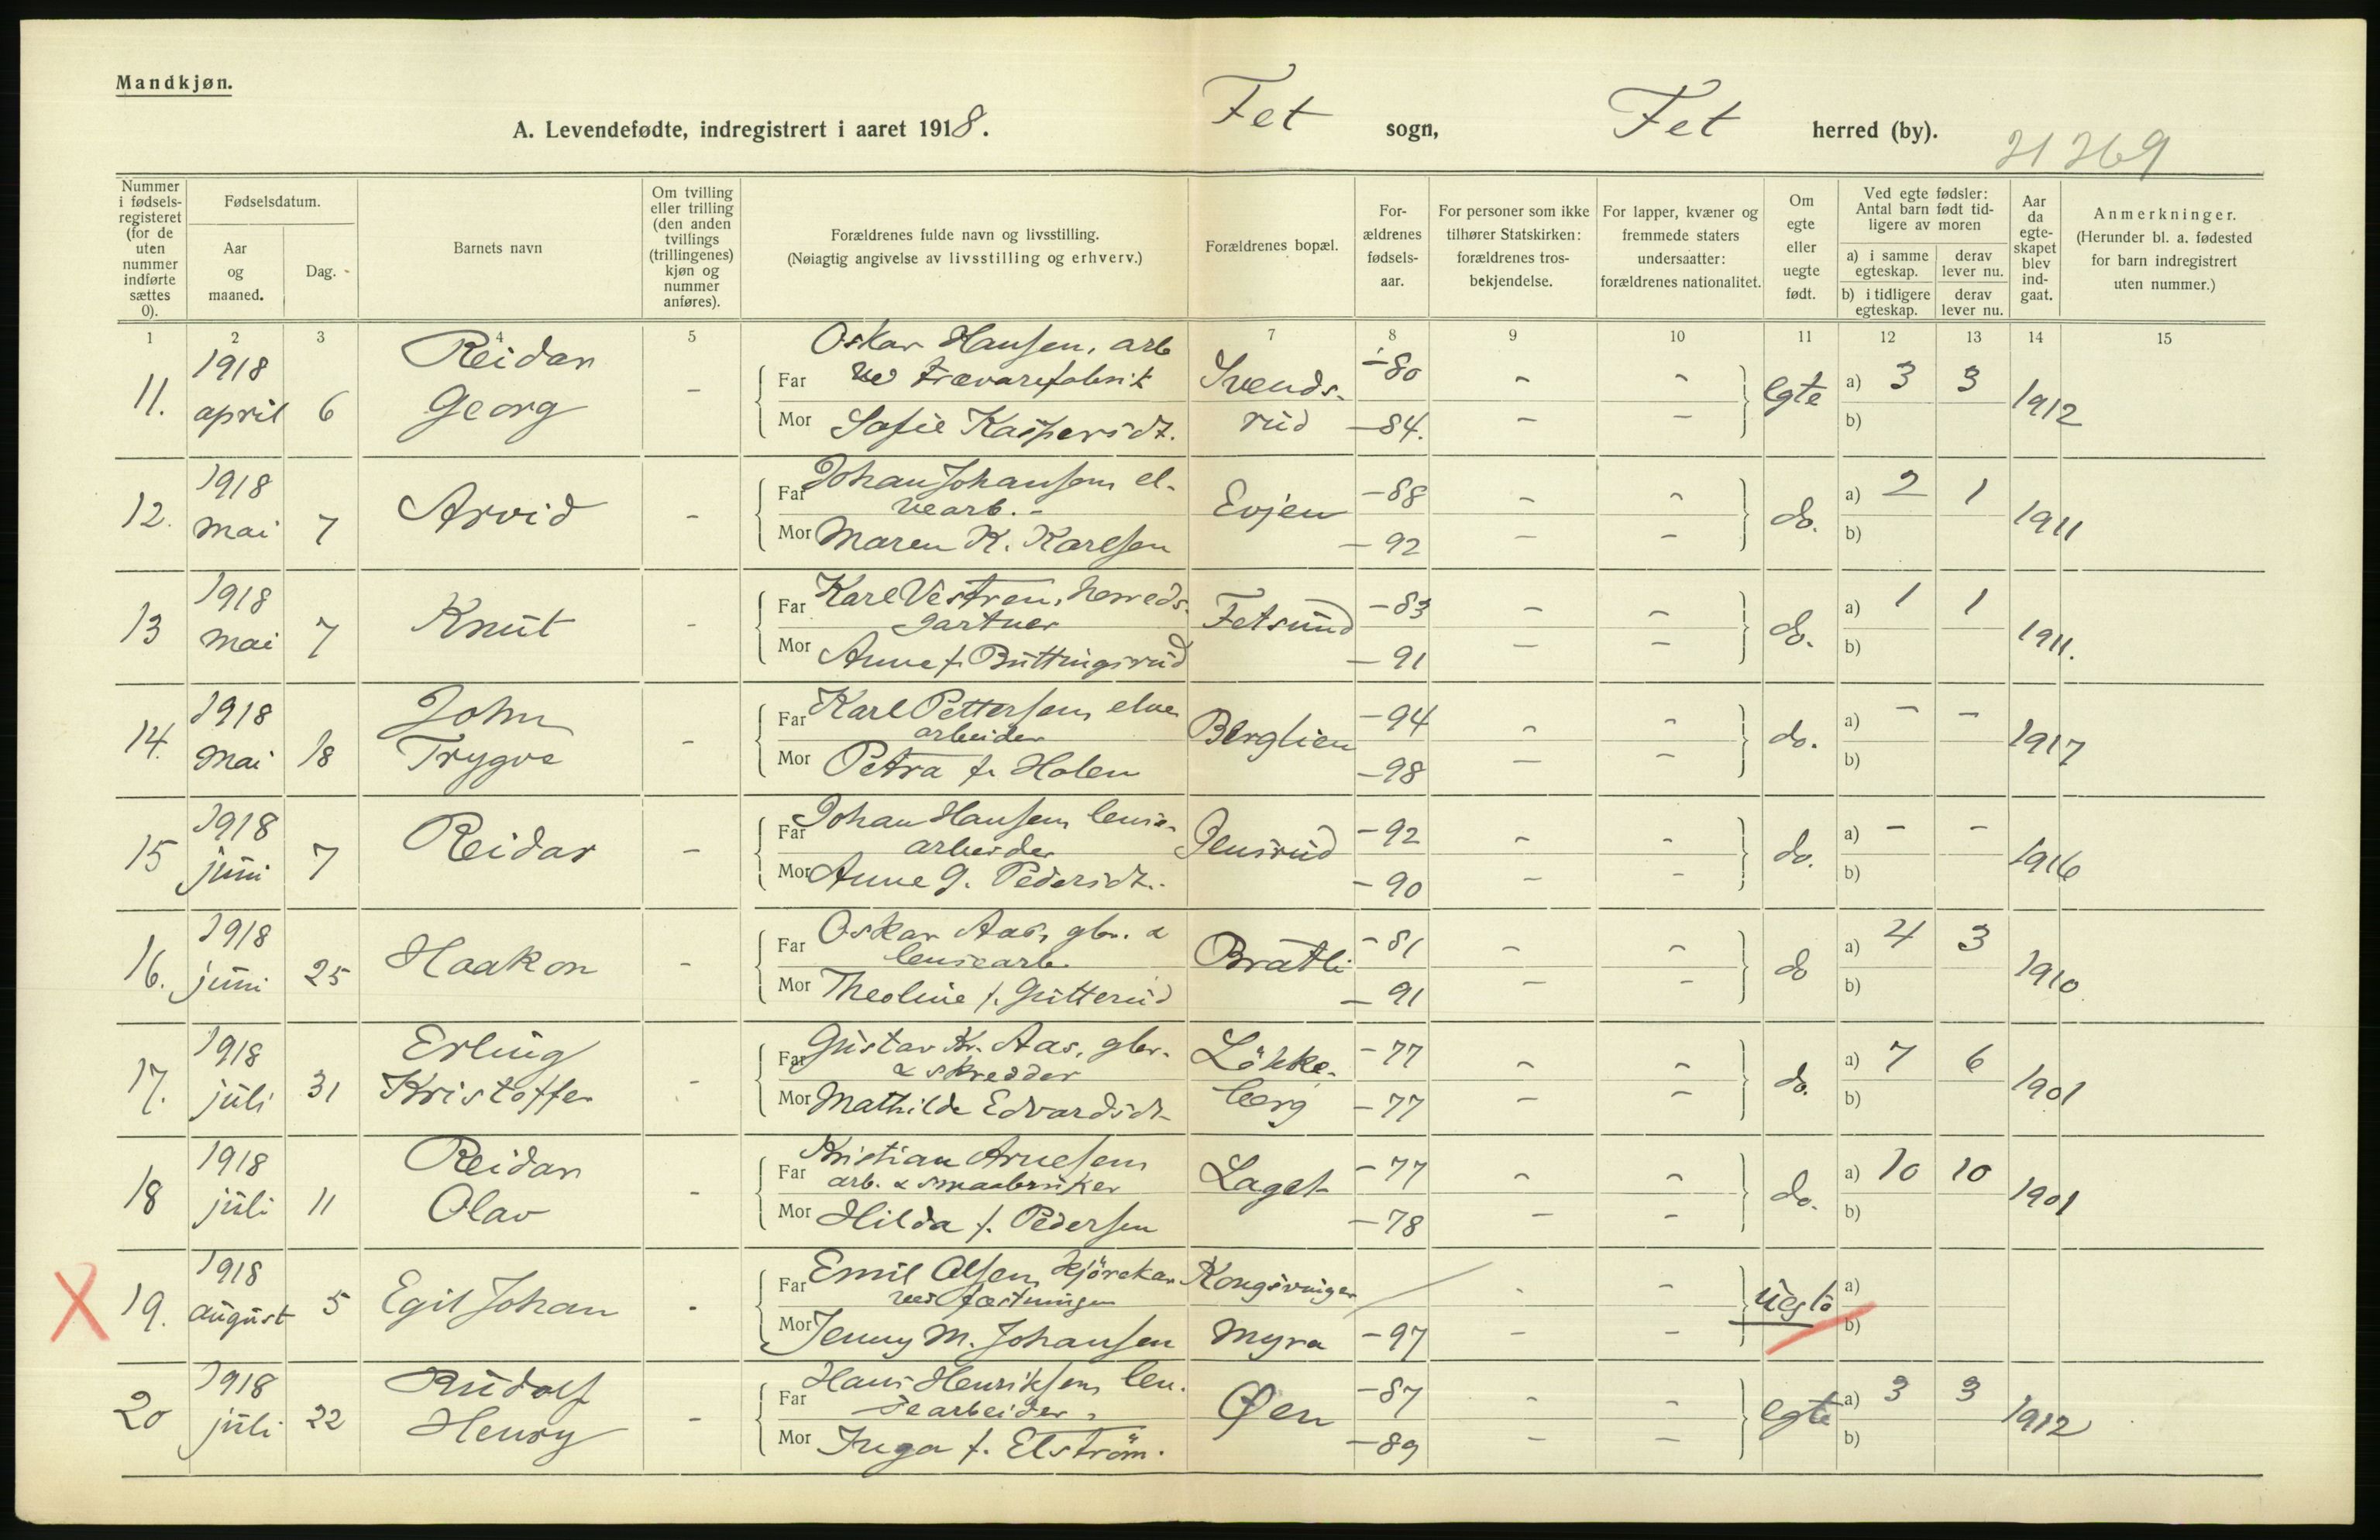 Mandkjøn.
A. Levendefødte, indregistrert i aaret 1918. Fet sogn, Fet herred (by).
21 269
Nummer i fødselsregisteret (for de uten nummer indførte sættes 0).
Fødselsdatum.
Aar og maaned.
Dag.
Barnets navn
Om tvilling eller trilling (den anden tvillings (trillingenes) kjøn og nummer anføres).
Forældrenes fulde navn og livsstilling.
(Nøiagtig angivelse av livsstilling og erhverv.)
Forældrenes bopæl.
Forældrenes fødselsaar.
For personer som ikke tilhører Statskirken: forældrenes trosbekjendelse.
For lapper, kvæner og fremmede staters undersaatter: forældrenes nationalitet.
Om egte eller uegte født.
Ved egte fødsler: Antal barn født tidligere av moren
a) i samme egteskap.
derav lever nu.
b) i tidligere egteskap.
derav lever nu.
Aar da egteskapet blev indgaat.
Anmerkninger.
(Herunder bl. a. fødested for barn indregistrert uten nummer.)
1 2 3 4 5 7 8 9 10 11 12 13 14 15
11. 1918 april 6 Reidar Georg -
Far Oskar Hansen, arb ved trævarefabrik Svendsrud -80 - - egte a) 3 3 1912
Mor Sofie Kaspersdt. -84. - - b)
12. 1918 mai 7 Arvid -
Far Johan Johansen el-vearb. - Evjen -88 - - do. a) 2 1 1911
Mor Maren K. Karlsen -92 - - b)
13 1918 mai 7 Knut -
Far Karl Vestren, herredsgartner Fetsund -83 - - do. a) 1 1 1911.
Mor Anne f. Buttingsrud -91 - - b)
14. 1918 mai 18 John Trygve -
Far Karl Pettersen, elvearbeider Berglien -94 - - do. a) - - 1917
Mor Petra f. Holen -98 - - b)
15 1918 juni 7 Reidar -
Far Johan Hansen, lensearbeider Jensrud -92 - - do. a) - - 1916
Mor Anne G. Pedersdt. -90 - - b)
16. 1918 juni 25 Haakon -
Far Oskar Aas, gbr. & lensearb. Bratli -81 - - do a) 4 3 1910
Mor Theoline f. Gutterud -91 - - b)
17. 1918 juli 31 Erling Kristoffer -
Far Gustav Kr. Aas, gbr. & skredder Lökkeberg -77 - - do. a) 7 6 1901
Mor Mathilde Edvardsdt -77 - - b)
18 1918 juli 11 Reidar Olav -
Far Kristian Arnesen arb. & smaabruker Laget -77 - - do. a) 10 10 1901
Mor Hilda f. Pedersen -78 - - b)
X 19. 1918 august 5 Egil Johan -
Far Emil Olsen, kjörekar ved fæstningen Kongsvinger - - uegte a)
Mor Jenny M. Johansen Myra -97 - - b)
20 1918 juli 22 Rudolf Henry -
Far Hans Henriksen, lensearbeider, Øen -87 - - egte a) 3 3 1912
Mor Inga f. Elström. -89 - - b)